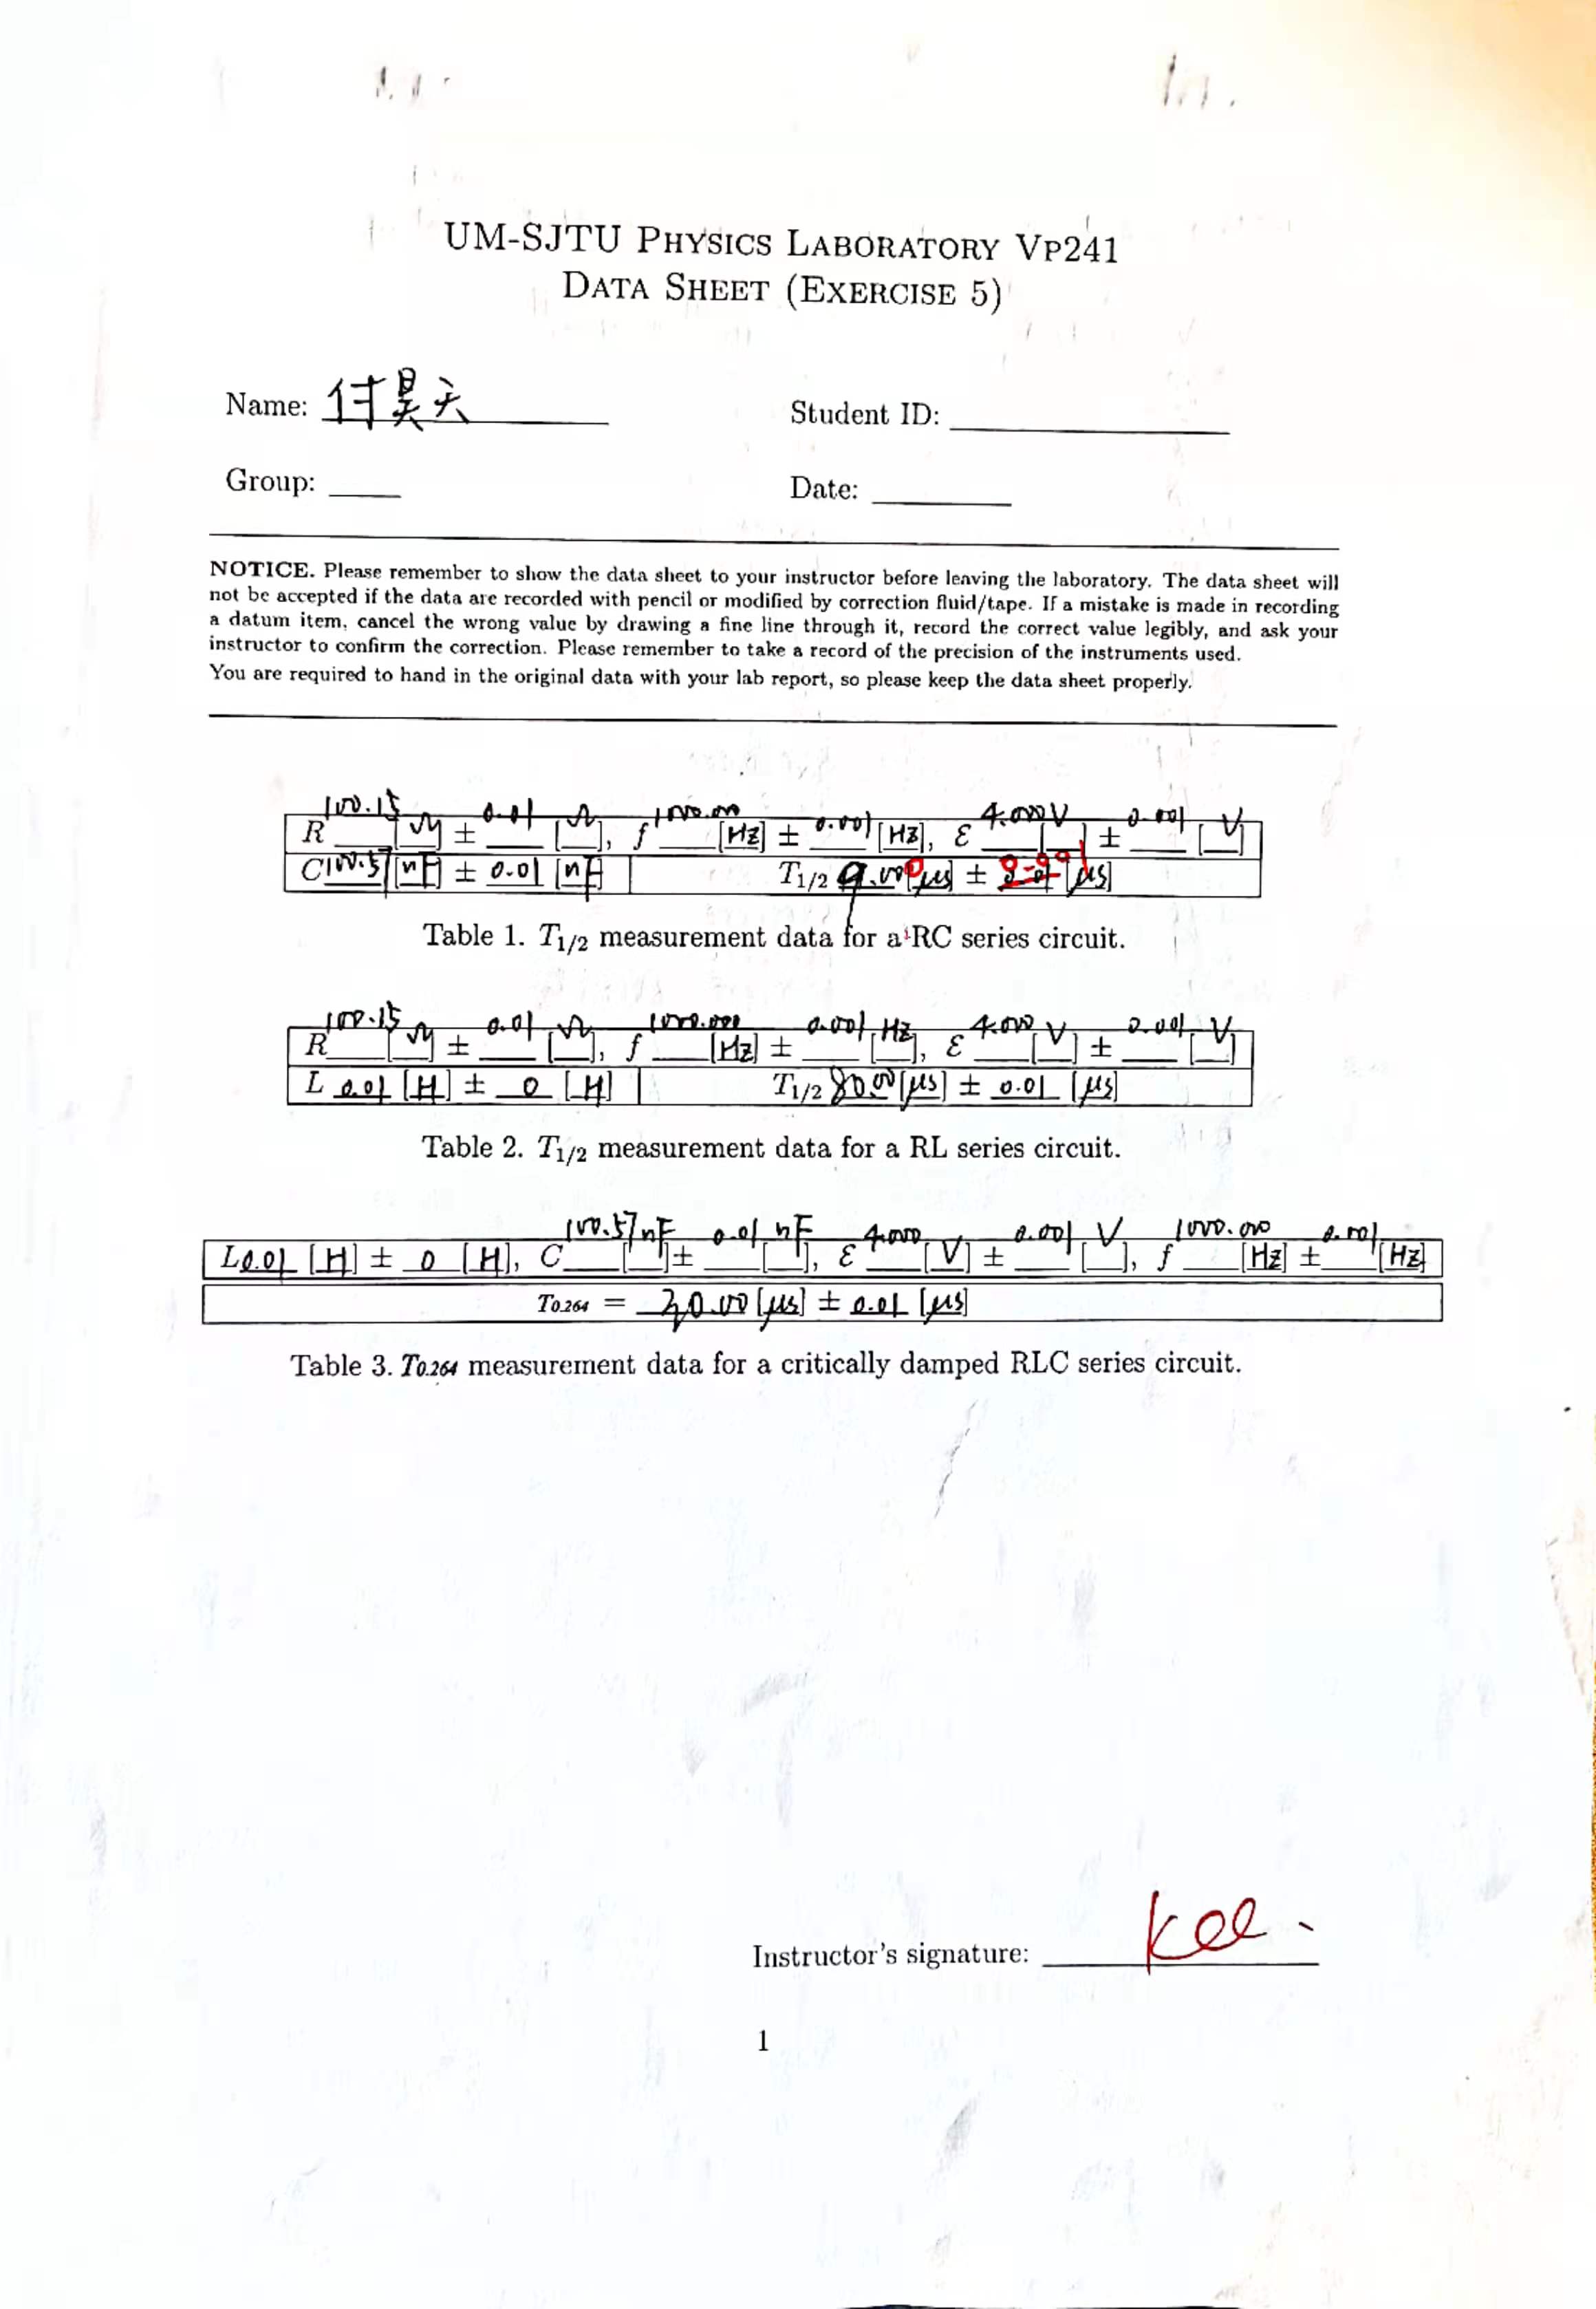 UM-SJTU PHYSICS LABORATORY VP241
DATA SHEET (EXERCISE 5)
Name: 付昊天 Student ID:
Group: Date:
NOTICE. Please remember to show the data sheet to your instructor before leaving the laboratory. The data sheet will
not be accepted if the data are recorded with pencil or modified by correction fluid/tape. If a mistake is made in recording
a datum item, cancel the wrong value by drawing a fine line through it, record the correct value legibly, and ask your
instructor to confirm the correction. Please remember to take a record of the precision of the instruments used.
You are required to hand in the original data with your lab report, so please keep the data sheet properly.
R 100.15 [Ω] ± 0.01 [Ω], f 1000.000 [Hz] ± 0.001 [Hz], ε 4.000 V [ ] ± 0.001 [V]
C 100.57 [nF] ± 0.01 [nF] T1/2 9.000 [μs] ± [μs]
Table 1. T1/2 measurement data for a RC series circuit.
R 100.15 [Ω] ± 0.01 [Ω], f 1000.000 [Hz] ± 0.001 [Hz], ε 4.000 [V] ± 0.001 [V]
L 0.01 [H] ± 0 [H] T1/2 80.00 [μs] ± 0.01 [μs]
Table 2. T1/2 measurement data for a RL series circuit.
L 0.01 [H] ± 0 [H], C 100.57 [nF] ± 0.01 [nF], ε 4.000 [V] ± 0.001 [V], f 1000.000 [Hz] ± 0.001 [Hz]
T0.264 = [μs] ± 0.01 [μs]
Table 3. T0.264 measurement data for a critically damped RLC series circuit.
Instructor's signature:
1